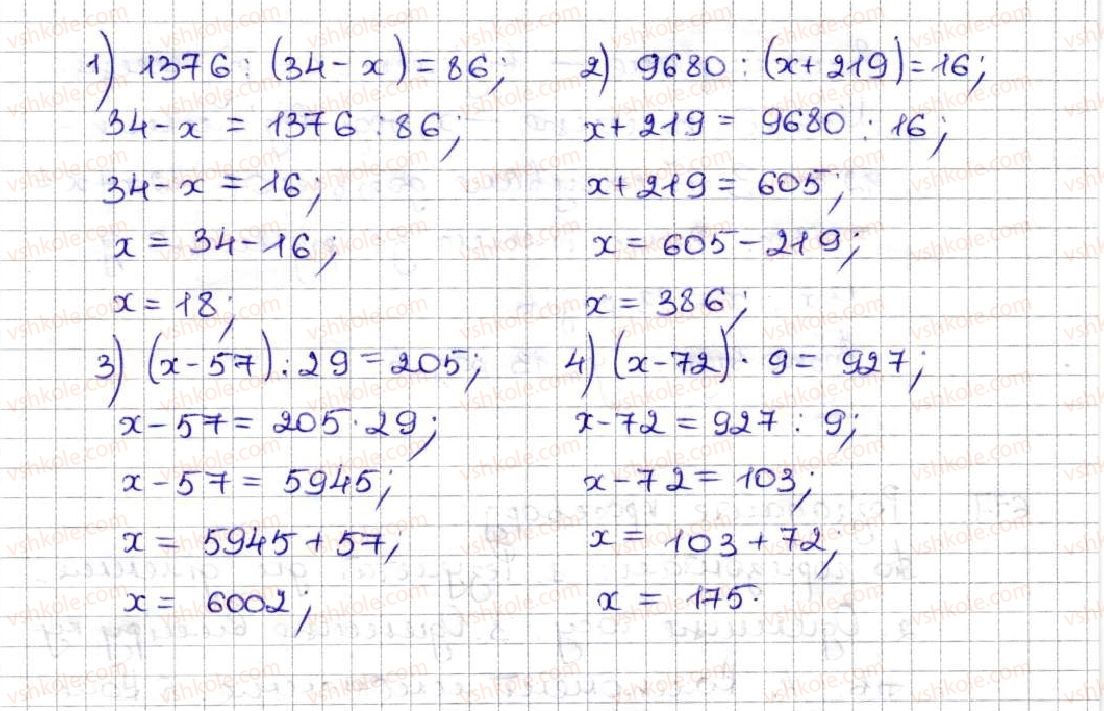 1) 1376 : (34 - x) = 86;
34 - x = 1376 : 86;
34 - x = 16;
x = 34 - 16;
x = 18;
2) 9680 : (x + 219) = 16;
x + 219 = 9680 : 16;
x + 219 = 605;
x = 605 - 219;
x = 386;
3) (x - 57) : 29 = 205;
x - 57 = 205 · 29;
x - 57 = 5945;
x = 5945 + 57;
x = 6002;
4) (x - 72) · 9 = 927;
x - 72 = 927 : 9;
x - 72 = 103;
x = 103 + 72;
x = 175.
vshkole.com